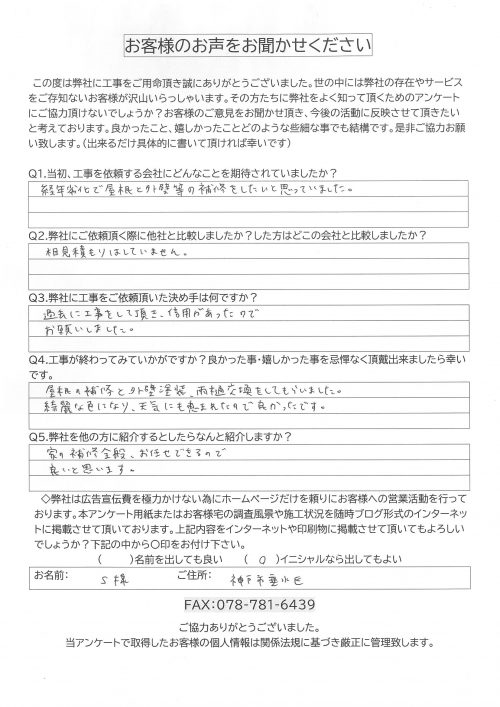 お客様のお声をお聞かせください
この度は弊社に工事をご用命頂き誠にありがとうございました。世の中には弊社の存在やサービス
をご存知ないお客様が沢山いらっしゃいます。その方たちに弊社をよく知って頂くためのアンケート
にご協力頂けないでしょうか？お客様のご意見をお聞かせ頂き、今後の活動に反映させて頂きたい
と考えております。良かったこと、嬉しかったことどのような些細な事でも結構です。是非ご協力お願
い致します。（出来るだけ具体的に書いて頂ければ幸いです）
Q1.当初、工事を依頼する会社にどんなことを期待されていましたか？
経年劣化で屋根と外壁等の補修をしたいと思っていました。
Q2.弊社にご依頼頂く際に他社と比較しましたか？した方はどこの会社と比較しましたか？
相見積もりはしていません。
Q3.弊社に工事をご依頼頂いた決め手は何ですか？
過去に工事をして頂き、信用があったので
お願いしました。
Q4.工事が終わってみていかがですか？良かった事・嬉しかった事を忌憚なく頂戴出来ましたら幸い
です。
屋根の補修と外壁塗装、雨樋交換をしてもらいました。
綺麗な色になり、天気にも恵まれたので良かったです。
Q5.弊社を他の方に紹介するとしたらなんと紹介しますか？
家の補修全般、お任せできるので
良いと思います。
◇弊社は広告宣伝費を極力かけない為にホームページだけを頼りにお客様への営業活動を行って
おります。本アンケート用紙またはお客様宅の調査風景や施工状況を随時ブログ形式のインターネッ
トに掲載させて頂いております。上記内容をインターネットや印刷物に掲載させて頂いてもよろしい
でしょうか？下記の中から〇印をお付け下さい。
（　）名前を出しても良い　（ ○ ）イニシャルなら出してもよい
お名前： S様 ご住所： 神戸市垂水区
FAX:078-781-6439
ご協力ありがとうございました。
当アンケートで取得したお客様の個人情報は関係法規に基づき厳正に管理致します。